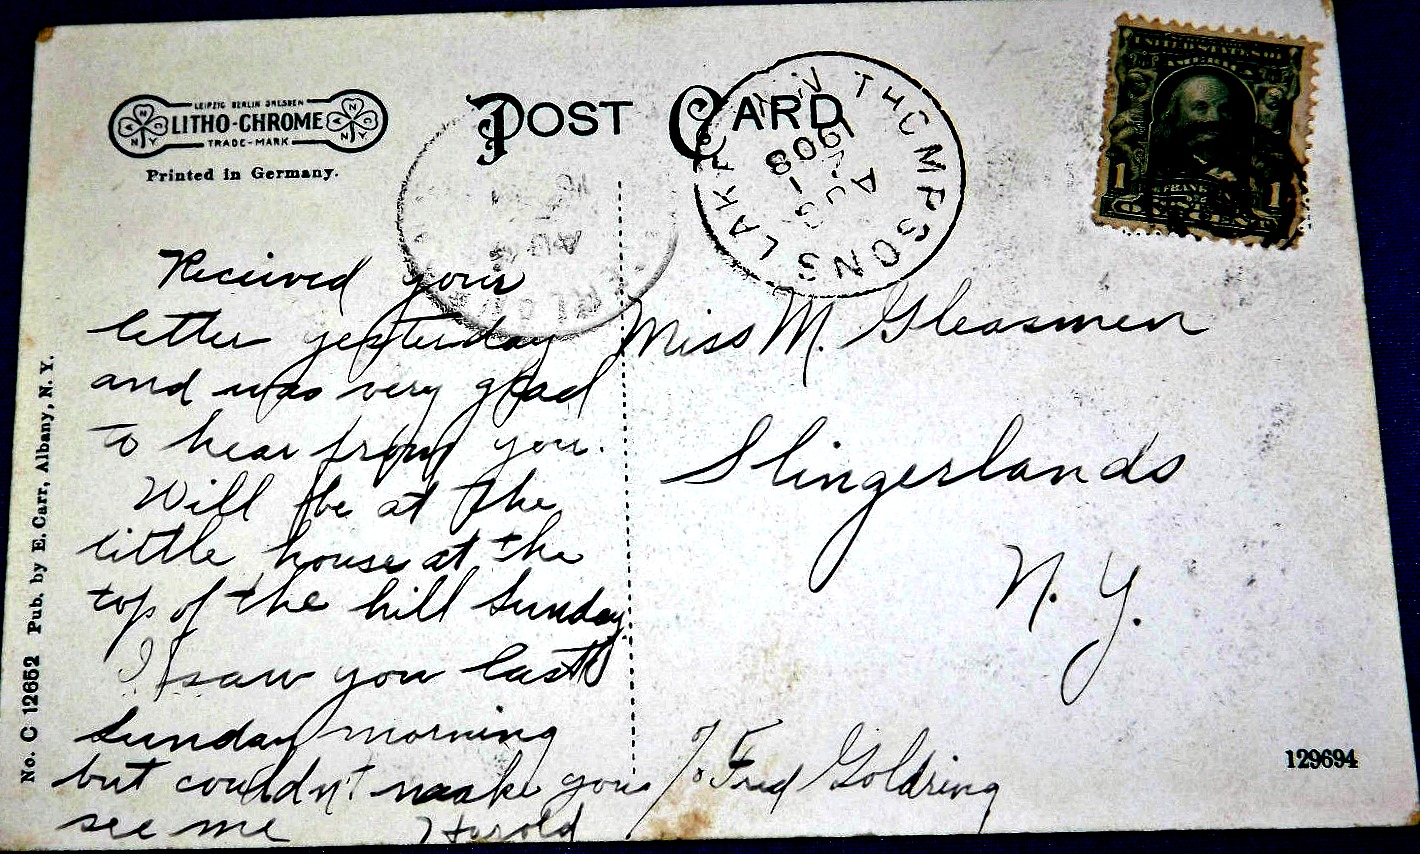 LEIPZIG BERLIN DRESDEN
LITHO-CHROME
TRADE-MARK
Printed in Germany.
POST CARD
THOMPSONS LAKE N.Y.
1908
UNITED STATES OF
AMERICA
1 1
FRANKLIN
ONE CENT
Received your
letter yesterday
and was very glad
to hear from you.
Will be at the
little house at the
top of the hill Sunday
I saw you last
Sunday morning
but couldn't make you
see me Harold
Miss M. Gleasmen
Slingerlands
N. Y.
℅ Fred Goldring
129694
No. C 12652 Pub. by E. Carr, Albany, N. Y.